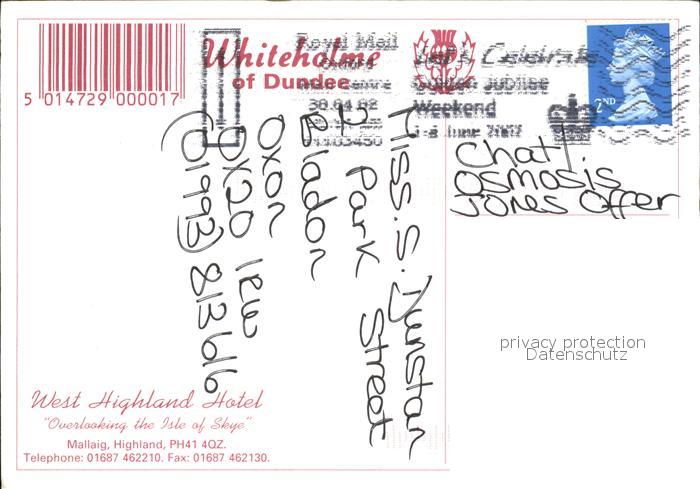 5 014729 000017
Whiteholme
of Dundee
Royal Mail
Let's Celebrate
Golden Jubilee
Weekend
1-4 June 2002
2ND
Chat!
Osmosis
Jones Offer
Miss. S. Dunstan
2 Park Street
Bladon
Oxon
OX20 1RW
(01993) 813616
privacy protection
Datenschutz
West Highland Hotel
"Overlooking the Isle of Skye"
Mallaig, Highland, PH41 4QZ.
Telephone: 01687 462210. Fax: 01687 462130.